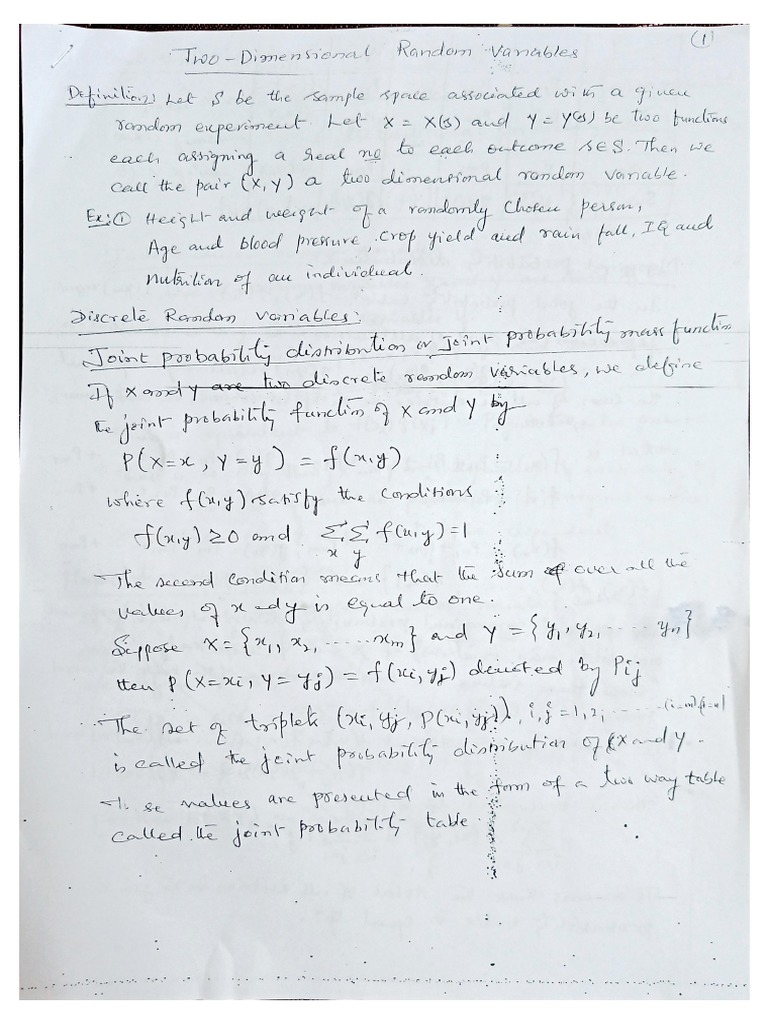 (1)
Two-Dimensional Random Variables
Definition: Let S be the sample space associated with a given
random experiment. Let X = X(s) and Y = Y(s) be two functions
each assigning a real no to each outcome s∈S. Then we
call the pair (X,Y) a two dimensional random variable.
Ex:① Height and weight of a randomly chosen person,
Age and blood pressure, crop yield and rain fall, IQ and
nutrition of an individual.
Discrete Random variables:
Joint probability distribution or Joint probability mass function
If X and Y are two discrete random variables, we define
the joint probability function of X and Y by
P(X=x, Y=y) = f(x,y)
where f(x,y) satisfy the conditions
f(x,y) ≥ 0 and ΣΣ f(x,y) = 1
x y
The second condition means that the sum over all the
values of x and y is equal to one.
Suppose X = {x₁, x₂, ...... xₘ} and Y = {y₁, y₂, ...... yₙ}
then P(X=xi, Y=yj) = f(xi,yj) denoted by Pij
The set of triplets (xi, yj, P(xi,yj)), i,j = 1,2, ......
is called the joint probability distribution of X and Y.
se values are presented in the form of a two way table
called the joint probability table.